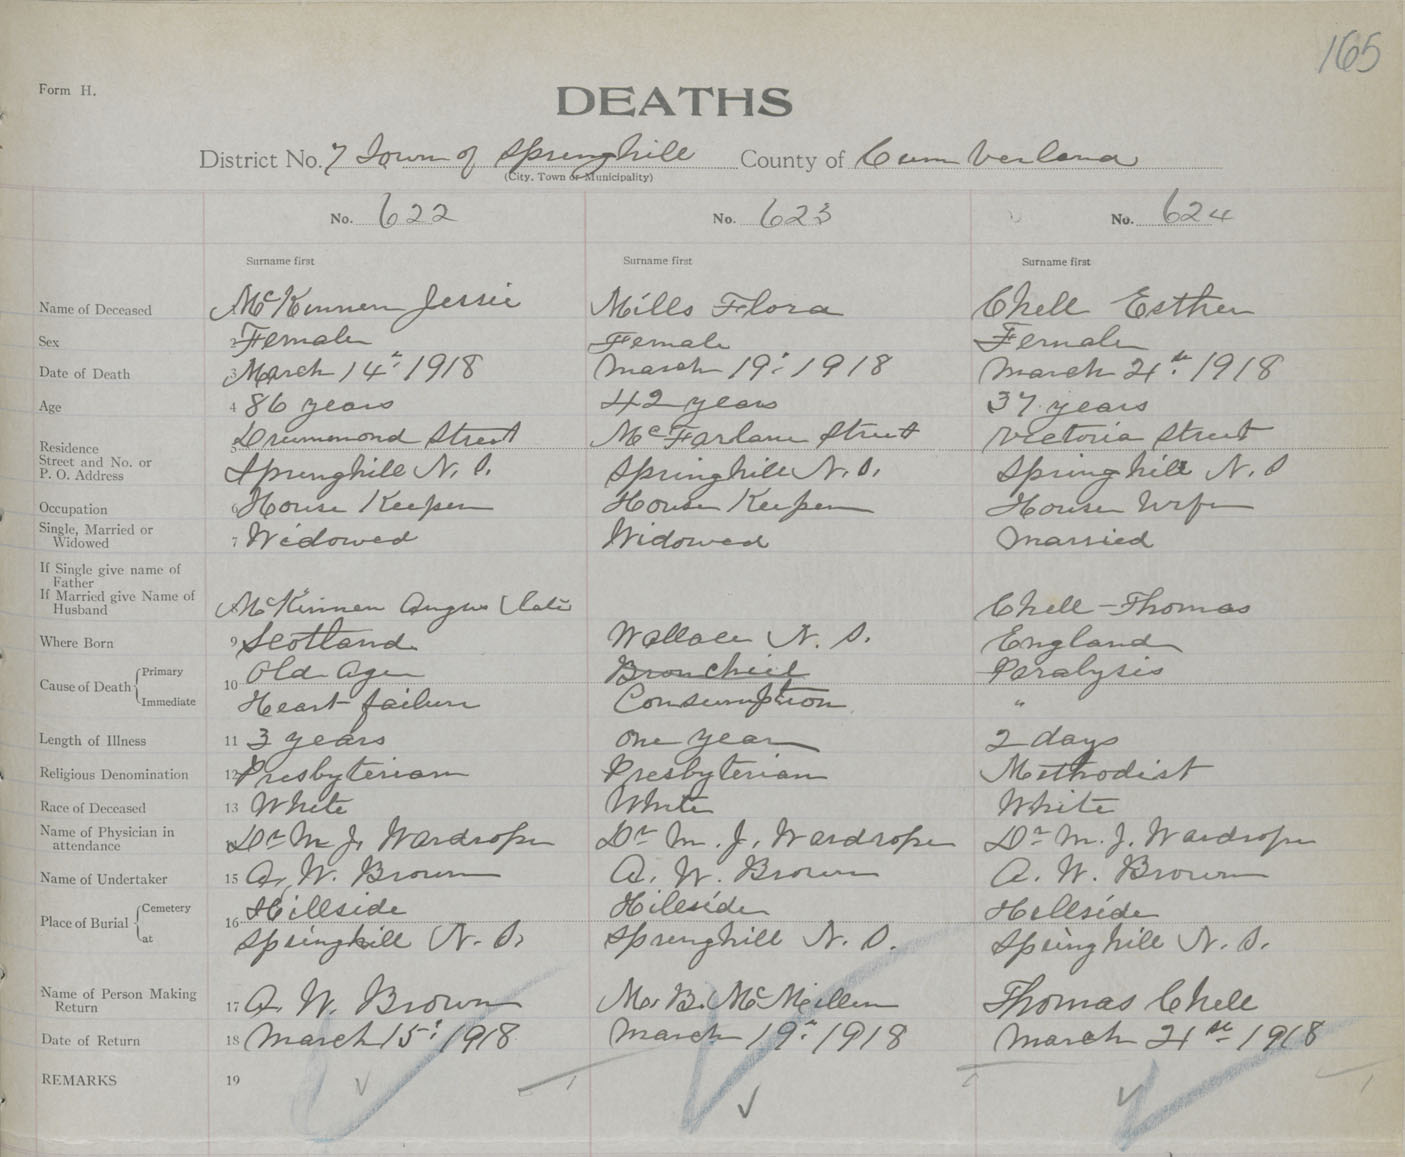 165
Form H.
DEATHS
District No. 7 Town of Springhill County of Cumberland
(City, Town or Municipality)
No. 622 No. 623 No. 624
Surname first Surname first Surname first
Name of Deceased McKinnon Jessie Mills Flora Chell Esther
Sex 2 Female Female Female
Date of Death 3 March 14th 1918 March 19th 1918 March 21st 1918
Age 4 86 years 42 years 37 years
Residence 5 Drummond Street McFarlane Street Victoria Street
Street and No. or
P. O. Address Springhill N. S. Springhill N. S. Springhill N. S
Occupation 6 House Keeper House Keeper House Wife
Single, Married or
Widowed 7 Widowed Widowed Married
If Single give name of
Father
If Married give Name of
Husband McKinnon Angus (late Chell - Thomas
Where Born 9 Scotland Wallace N. S. England
Cause of Death 10 Primary Old Age Bronchial Paralysis
Immediate Heart failure Consumption "
Length of Illness 11 3 years one year 2 days
Religious Denomination 12 Presbyterian Presbyterian Methodist
Race of Deceased 13 White White White
Name of Physician in
attendance Dr M. J. Wardrope Dr M. J. Wardrope Dr M. J. Wardrope
Name of Undertaker 15 A. W. Brown A. W. Brown A. W. Brown
Place of Burial 16 Cemetery Hillside Hillside Hillside
at Springhill N. S. Springhill N. S. Springhill N. S.
Name of Person Making
Return 17 A. W. Brown M. B. McMillan Thomas Chell
Date of Return 18 March 15th 1918 March 19th 1918 March 21st 1918
REMARKS 19